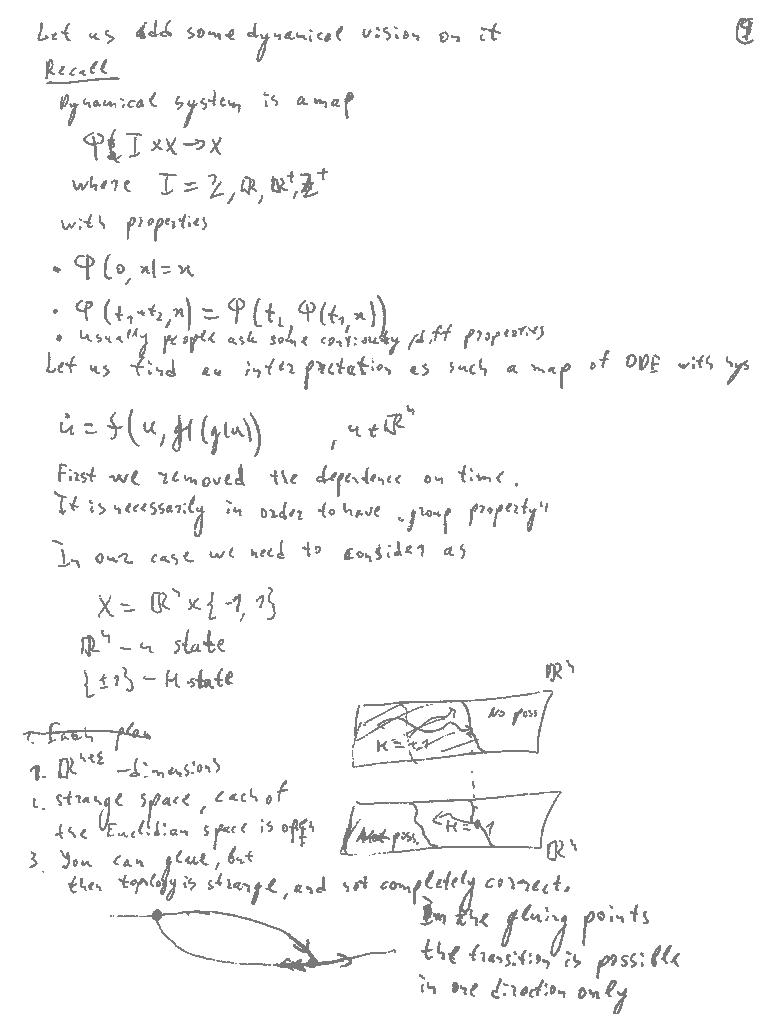 Let us add some dynamical vision on it
9
Recall
Dynamical system is a map
φ: I × X → X
where I = ℤ, ℝ, ℝ⁺, ℤ⁺
with properties
• φ(0, x) = x
• φ(t₁+t₂, x) = φ(t₂, φ(t₁, x))
• usually people ask some continuity, diff properties
Let us find an interpretation as such a map of ODE with hys
u̇ = f(u, H(g(u))) , u ∈ ℝⁿ
First we removed the dependence on time.
It is necessarily in order to have "group property"
In our case we need to consider as
X = ℝⁿ × {-1, 1}
ℝⁿ - u state
{±1} - H state
ℝⁿ
No poss
H = +1
1. Each plan
1. ℝⁿ⁺ᵋ - dimensions
2. strange space, each of
the Euclidian space is
Not poss.
ℝⁿ
3. You can glue, but
then toplogy is strange, and not completely correct.
In the gluing points
the transition is possible
in one direction only